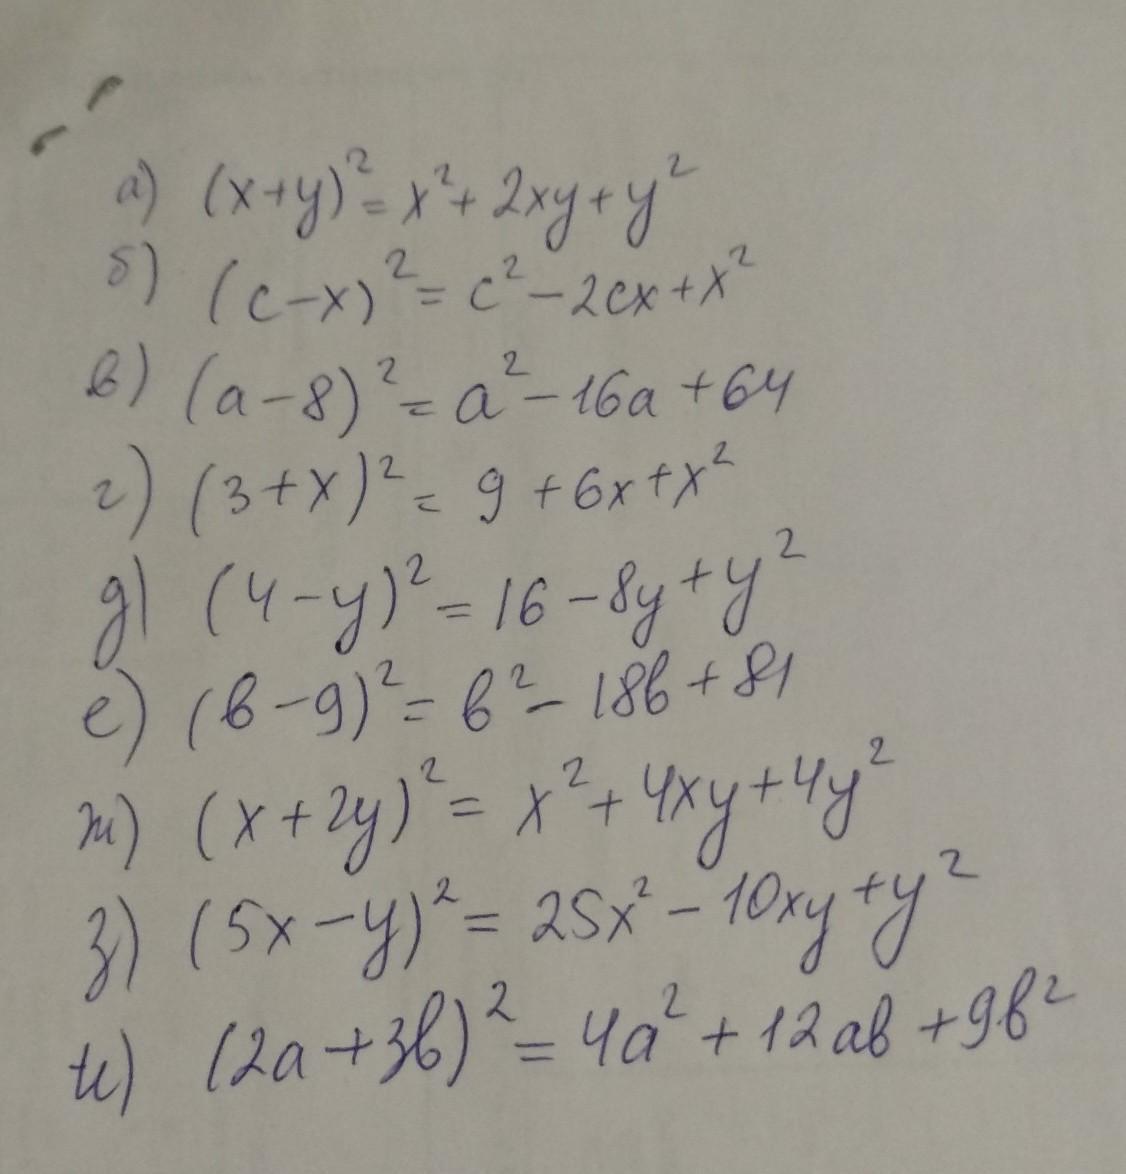 а) (x+y)²=x²+2xy+y²
б) (c-x)²=c²-2cx+x²
в) (a-8)²=a²-16a+64
г) (3+x)²=9+6x+x²
д) (4-y)²=16-8y+y²
е) (b-9)²=b²-18b+81
ж) (x+2y)²=x²+4xy+4y²
з) (5x-y)²=25x²-10xy+y²
и) (2a+3b)²=4a²+12ab+9b²